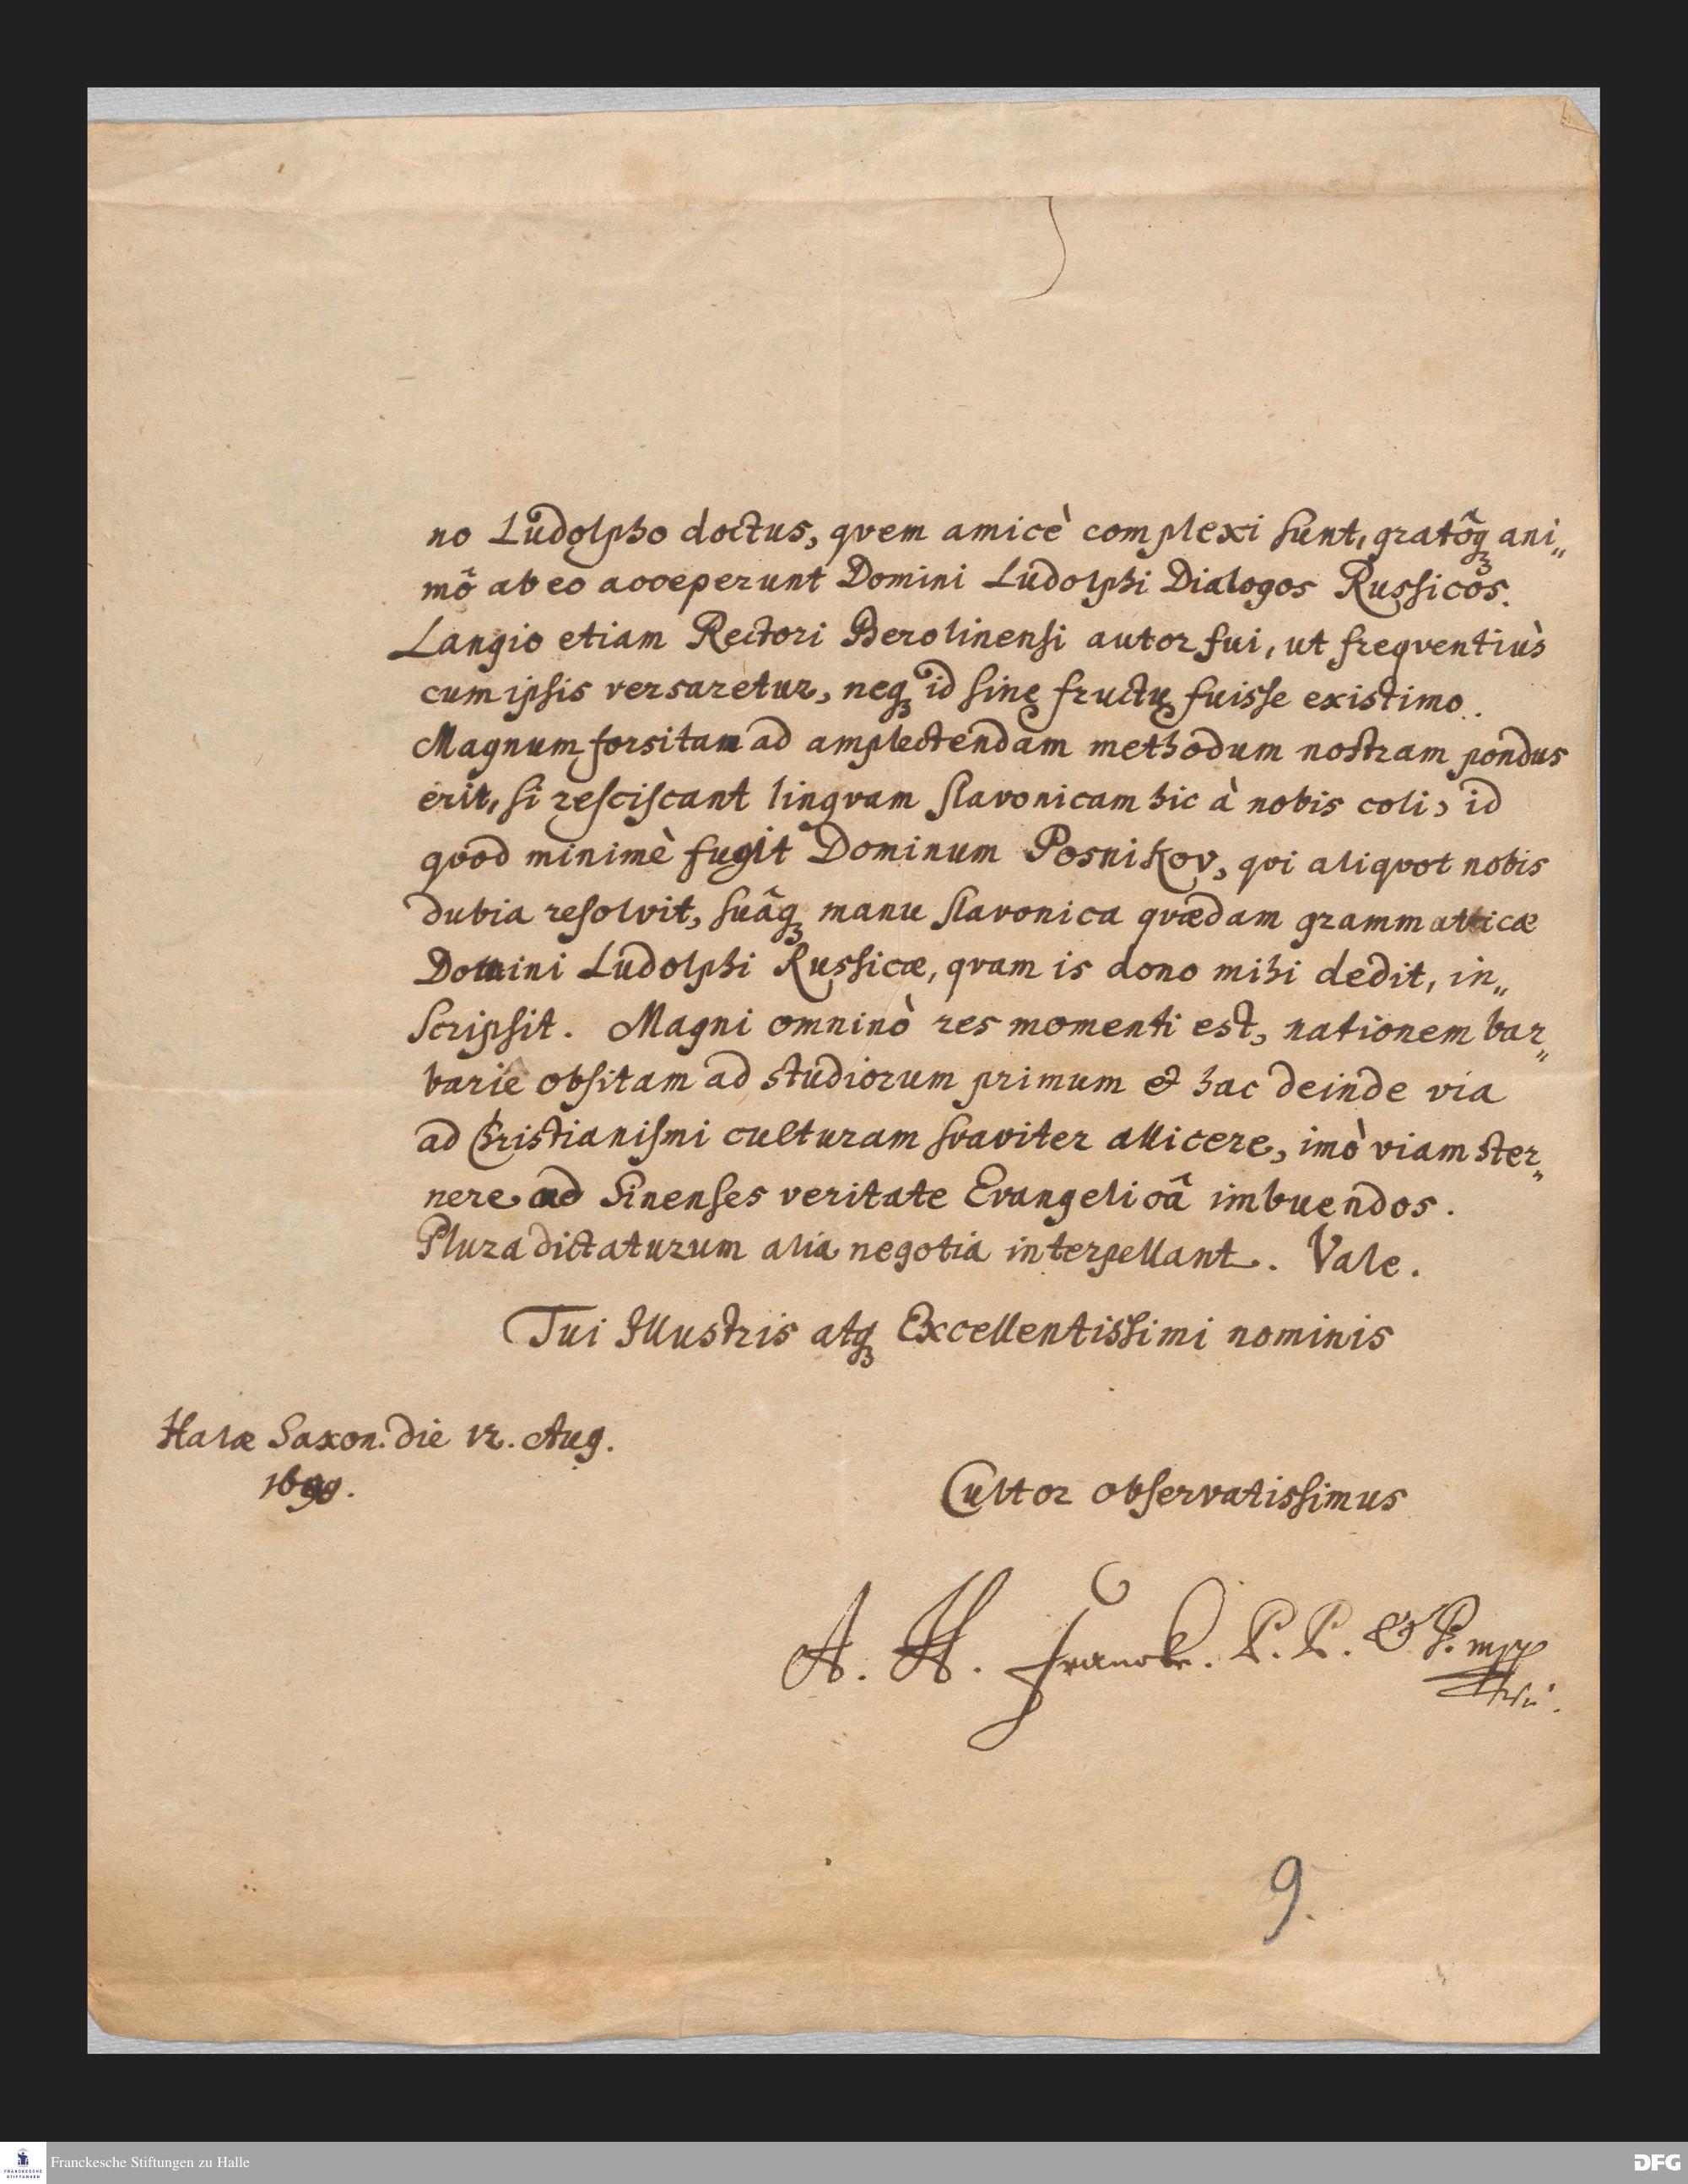 no Ludolpho doctus, qvem amicè complexi sunt, gratôq; ani„
mô ab eo acceperunt Domini Ludolphi Dialogos Russicos.
Langio etiam Rectori Berolinensi autor fui, ut freqventiùs
cum ipsis versaretur, neq; id sine fructu fuisse existimo.
Magnum forsitan ad amplectendam methodum nostram pondus
erit, si resciscant lingvam slavonicam hic à nobis coli, id
qvod minimè fugit Dominum Posnikov, qvi aliqvot nobis
dubia resolvit, suâq; manu slavonica qvædam grammaticæ
Domini Ludolphi Russicæ, qvam is dono mihi dedit, in„
scripsit. Magni omninò res momenti est, nationem bar„
barie obsitam ad studiorum primum & hac deinde via
ad Christianismi culturam svaviter allicere, imò viam ster„
nere ad Sinenses veritate Evangelicâ imbuendos.
Plura dictaturum alia negotia interpellant. Vale.
Tui Illustris atq; Excellentissimi nominis
Halæ Saxon. die 12. Aug.
1698.
Cultor observatissimus
A. H. Francke. P. P. & P. mpp
9.
Franckesche Stiftungen zu Halle
FRANCKESCHE
STIFTUNGEN
DFG